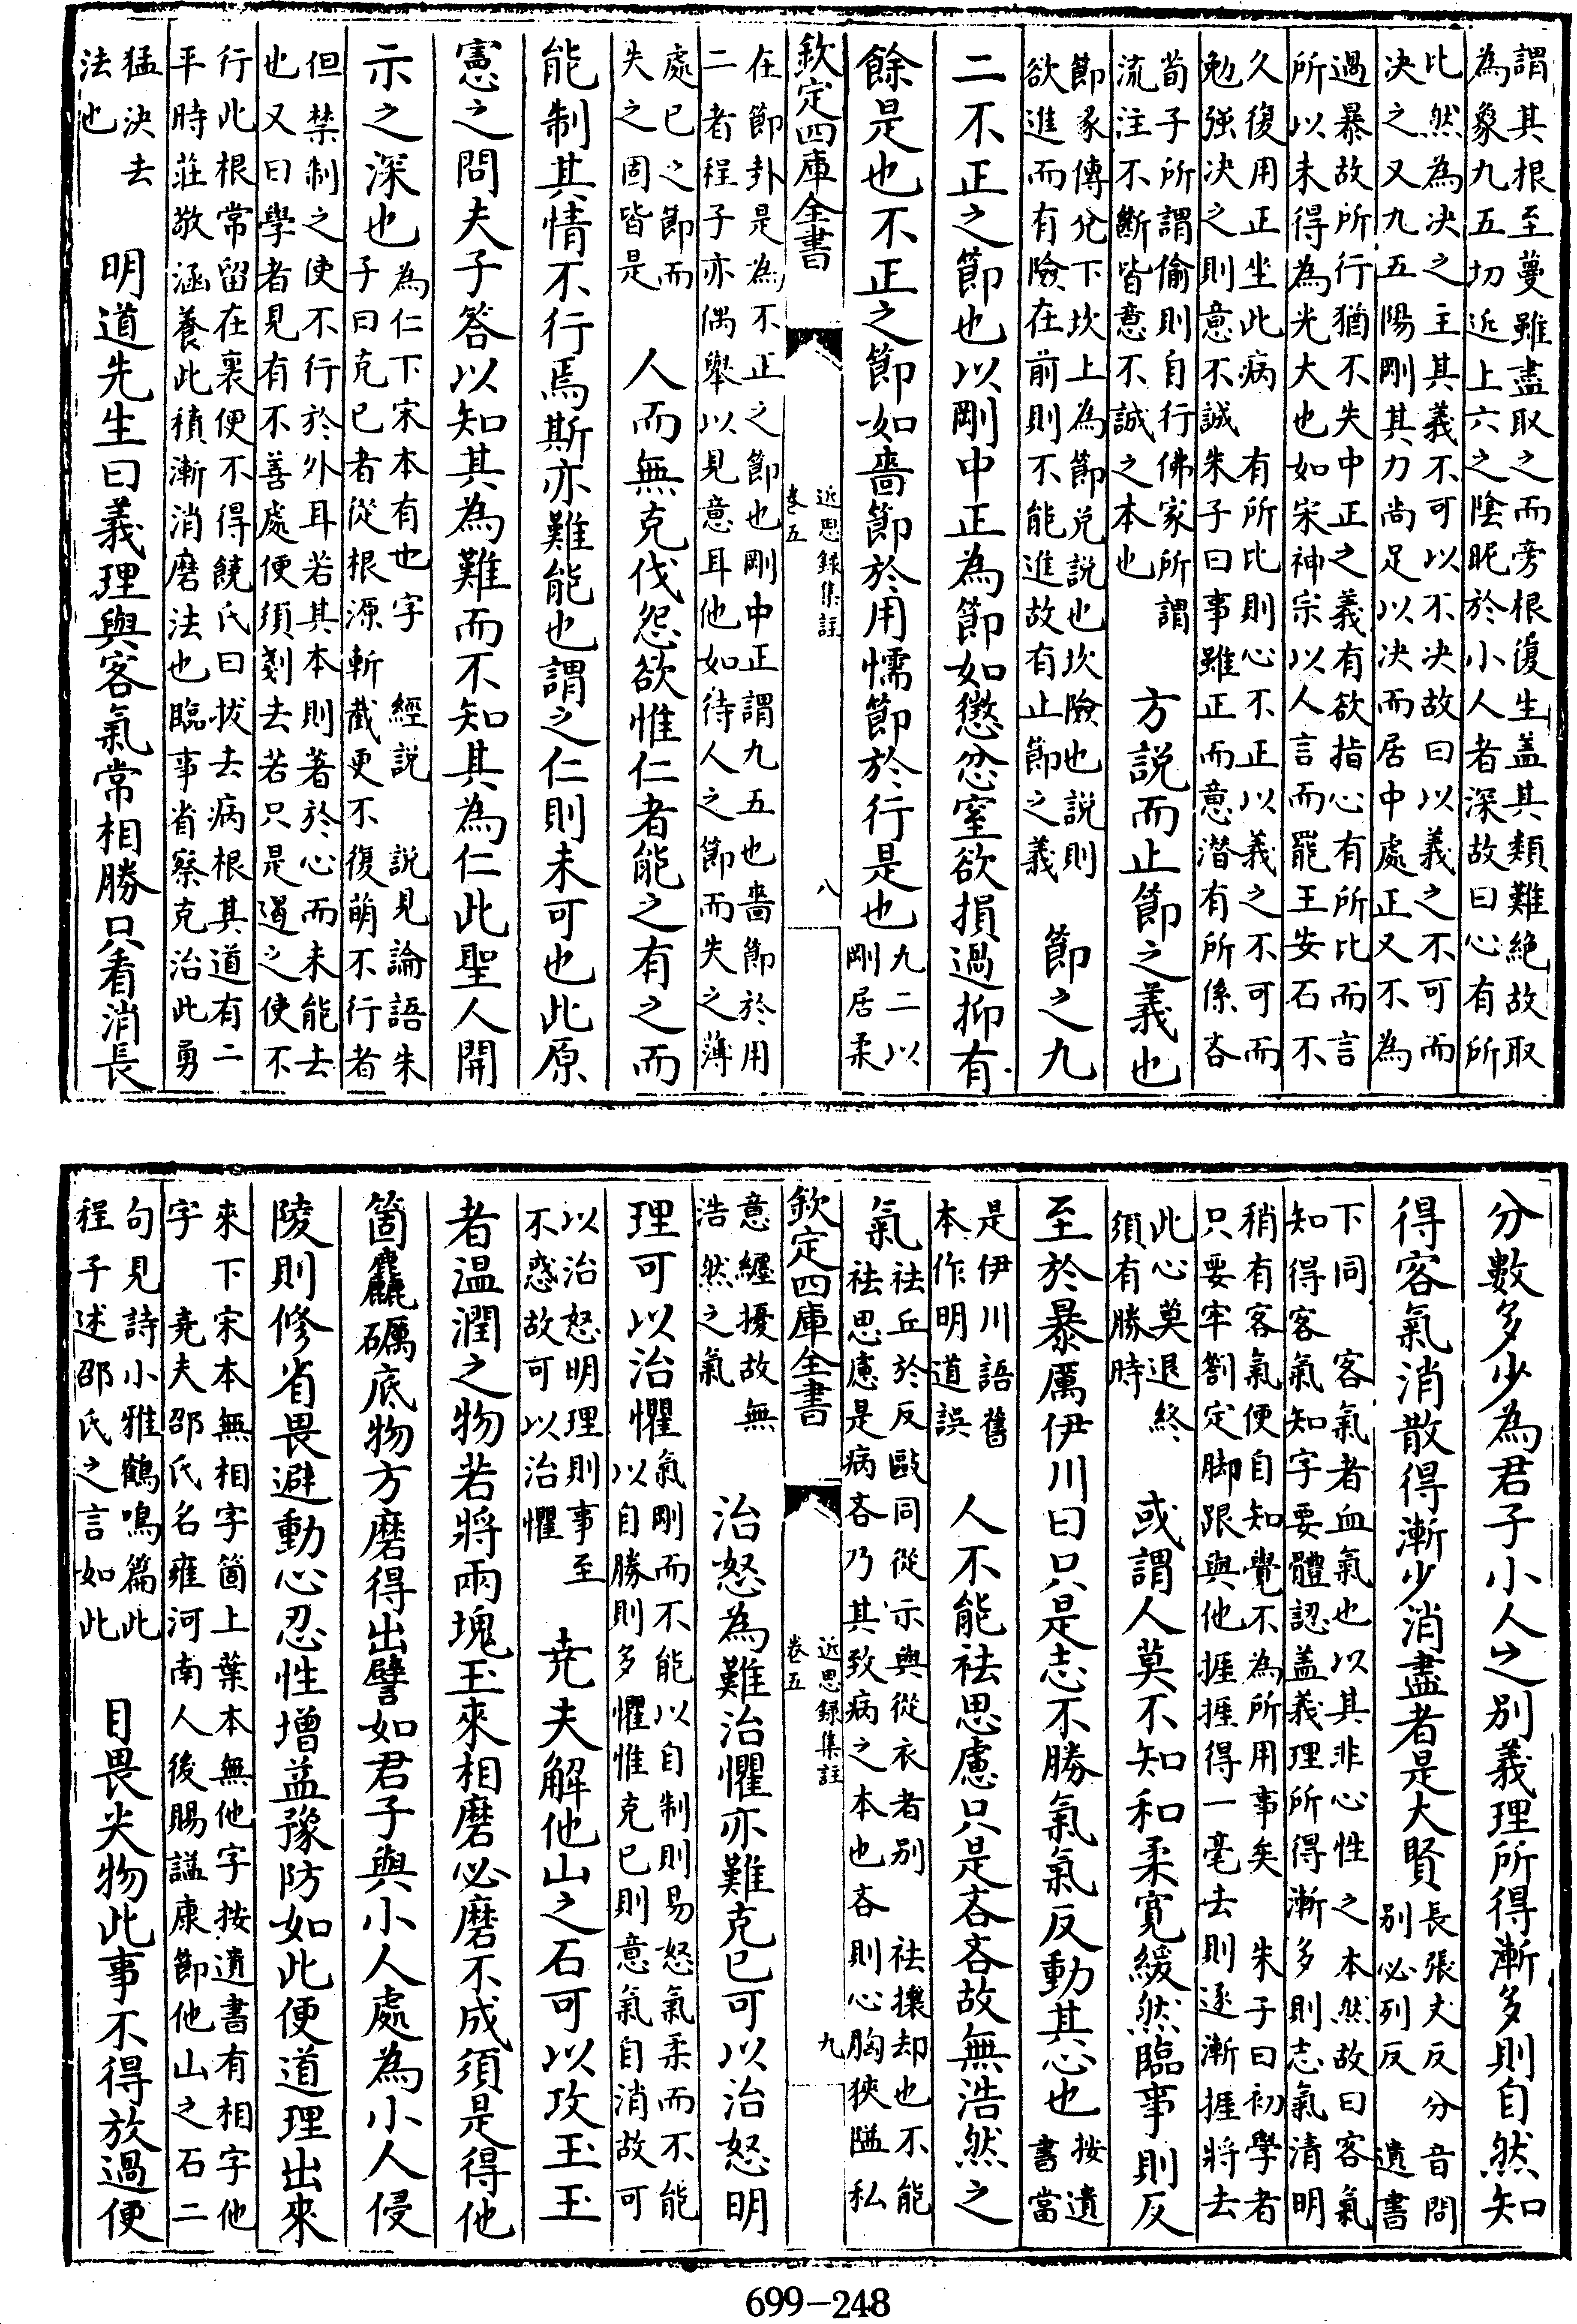 謂其根至蔓雖盡取之而旁根復生蓋其類難絕故取
為象九五切近上六之陰昵於小人者深故曰心有所
比然為決之主其義不可以不決故曰以義之不可而
決之又九五陽剛其力尚足以決而居中處正又不為
過暴故所行猶不失中正之義有欲指心有所比而言
所以未得為光大也如宋神宗以人言而罷王安石不
久復用正坐此病 有所比則心不正以義之不可而
勉強決之則意不誠朱子曰事雖正而意潛有所係吝
荀子所謂偷則自行佛家所謂
流注不斷皆意不誠之本也
方説而止節之義也
節彖傳兌下坎上為節兌説也坎險也説則
欲進而有險在前則不能進故有止節之義
節之九
二不正之節也以剛中正為節如懲忿窒欲損過抑有
餘是也不正之節如嗇節於用懦節於行是也
九二以
剛居柔
欽定四庫全書
近思録集註
卷五
八
在節卦是為不正之節也剛中正謂九五也嗇節於用
二者程子亦偶舉以見意耳他如待人之節而失之薄
處已之節而
失之固皆是
人而無克伐怨欲惟仁者能之有之而
能制其情不行焉斯亦難能也謂之仁則未可也此原
憲之問夫子答以知其為難而不知其為仁此聖人開
示之深也
為仁下宋本有也字 經説 説見論語朱
子曰克已者從根源斬截更不復萌不行者
但禁制之使不行於外耳若其本則著於心而未能去
也又曰學者見有不善處便須剗去若只是遏之使不
行此根常留在裏便不得饒氏曰拔去病根其道有二
平時莊敬涵養此積漸消磨法也臨事省察克治此勇
猛決去
法也
明道先生曰義理與客氣常相勝只看消長
分數多少為君子小人之別義理所得漸多則自然知
得客氣消散得漸少消盡者是大賢
長張丈反分音問
別必列反 遺書
下同 客氣者血氣也以其非心性之本然故曰客氣
知得客氣知字要體認蓋義理所得漸多則志氣清明
稍有客氣便自知覺不為所用事矣 朱子曰初學者
只要牢劄定脚跟與他捱捱得一毫去則逐漸捱將去
此心莫退終
須有勝時
或謂人莫不知和柔寛緩然臨事則反
至於暴厲伊川曰只是志不勝氣氣反動其心也
按遺
書當
是伊川語舊
本作明道誤
人不能祛思慮只是吝吝故無浩然之
氣
祛丘於反毆同從示與從衣者別 祛攘却也不能
祛思慮是病吝乃其致病之本也吝則心胸狹隘私
欽定四庫全書
近思録集註
卷五
九
意纒擾故無
浩然之氣
治怒為難治懼亦難克已可以治怒明
理可以治懼
氣剛而不能以自制則易怒氣柔而不能
以自勝則多懼惟克已則意氣自消故可
以治怒明理則事至
不惑故可以治懼
尭夫解他山之石可以攻玉玉
者温潤之物若將兩塊玉來相磨必磨不成須是得他
箇麤礪底物方磨得出譬如君子與小人處為小人侵
陵則修省畏避動心忍性増益豫防如此便道理出來
來下宋本無相字箇上葉本無他字按遺書有相字他
字 尭夫邵氏名雍河南人後賜諡康節他山之石二
句見詩小雅鶴鳴篇此
程子述邵氏之言如此
目畏尖物此事不得放過便
699-248